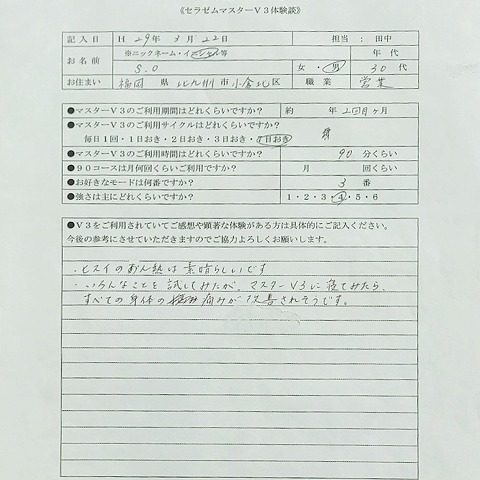 《セラゼムマスターV3体験談》
記入日 H 29年 3月 22日 担当：田中
お名前 ※ニックネーム・イニシャル等 年代
S.O 女・男 30代
お住まい 福岡 県 北九州 市 小倉北 区 職業 営業
●マスターV3のご利用期間はどれくらいですか？ 約 年 2回目ヶ月
●マスターV3のご利用サイクルはどれくらいですか？
毎日1回・1日おき・2日おき・3日おき・7日おき
●マスターV3のご利用時間はどれくらいですか？ 90分くらい
●90コースは月何回くらいご利用ですか？ 月 回くらい
●お好きなモードは何番ですか？ 3番
●強さは主にどれくらいですか？ 1・2・3・4・5・6
●V3をご利用されていてご感想や顕著な体験がある方は具体的にご記入ください。
今後の参考にさせていただきますのでご協力よろしくお願いします。
・ヒスイのおん熱は素晴らしいです
・いろんなことを試してみたが、マスターV3に寝てみたら、
すべての身体の痛みが改善されそうです。